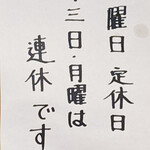 曜日 定休日
・三日・月曜は
連休です